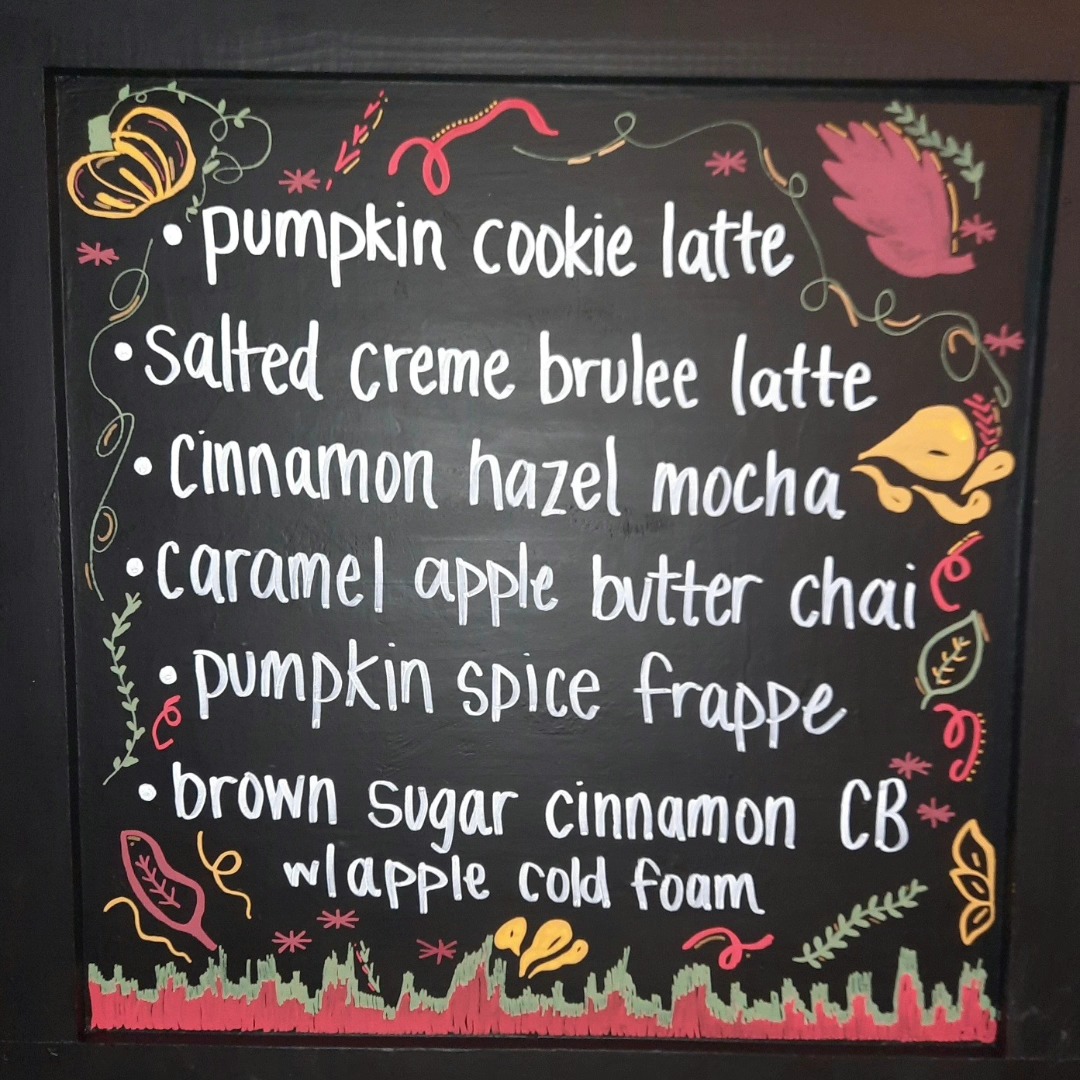 • pumpkin cookie latte
• salted creme brulee latte
• cinnamon hazel mocha
• caramel apple butter chai
• pumpkin spice frappe
• brown sugar cinnamon CB
w/apple cold foam